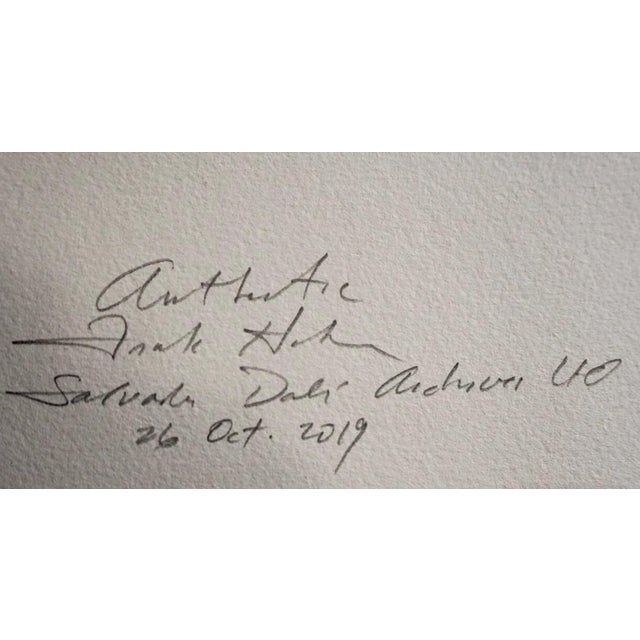 Authentic
Frank Hunter
Salvador Dalí Archives LTD
26 Oct. 2019